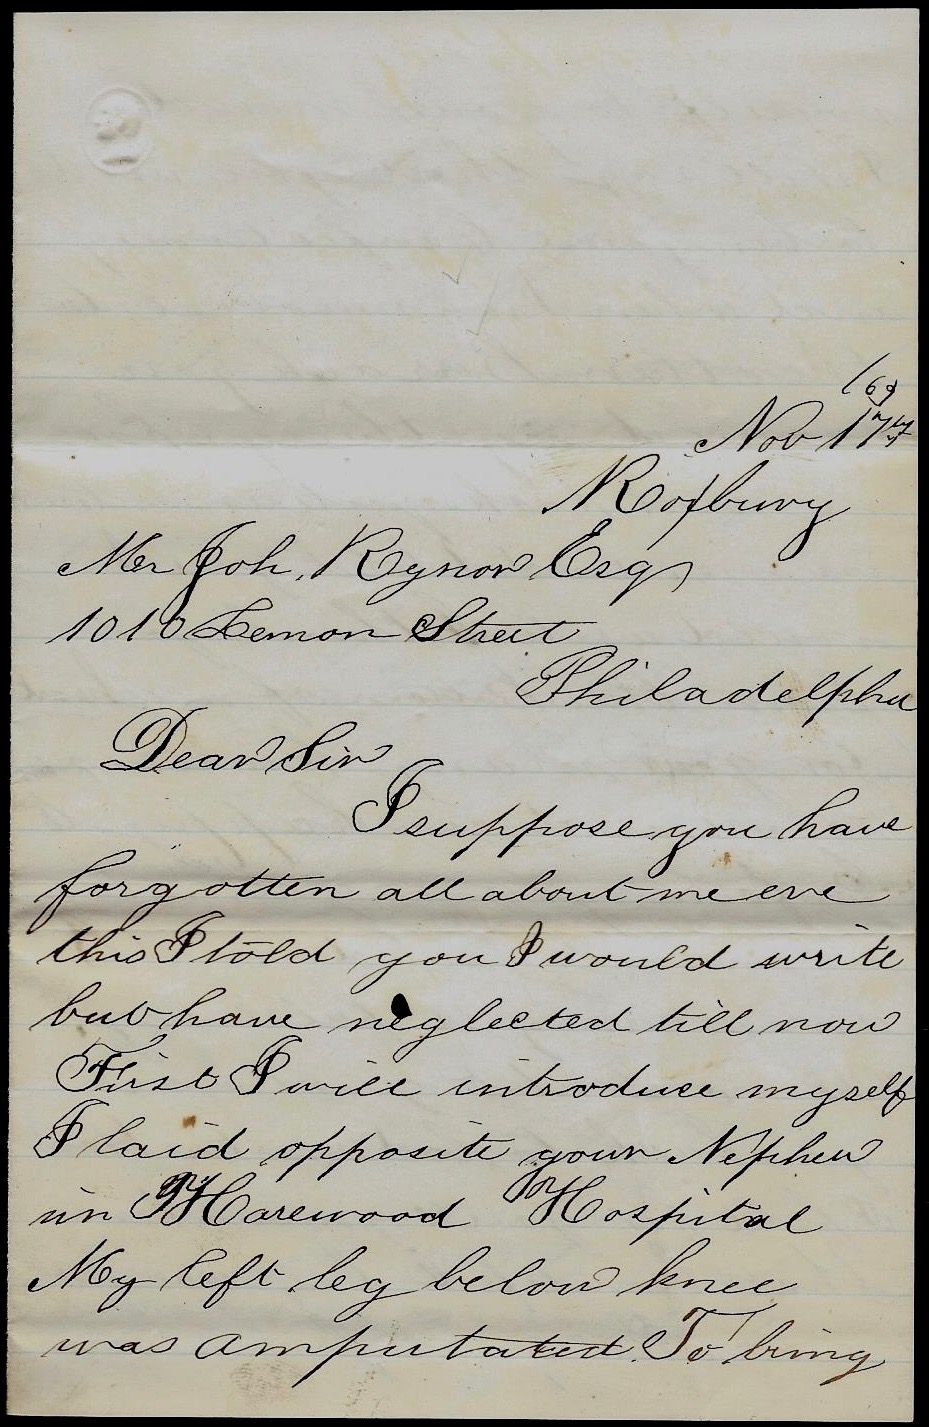 /69
Nov 17th
Roxbury
Mr Joh. Rynor Esq
1010 Lemon Street
Philadelphia
Dear Sir
I suppose you have
forgotten all about me ere
this I told you I would write
but have neglected till now
First I will introduce myself
I laid opposite your Nephew
in Harewood Hospital
My left leg below knee
was amputated. To bring